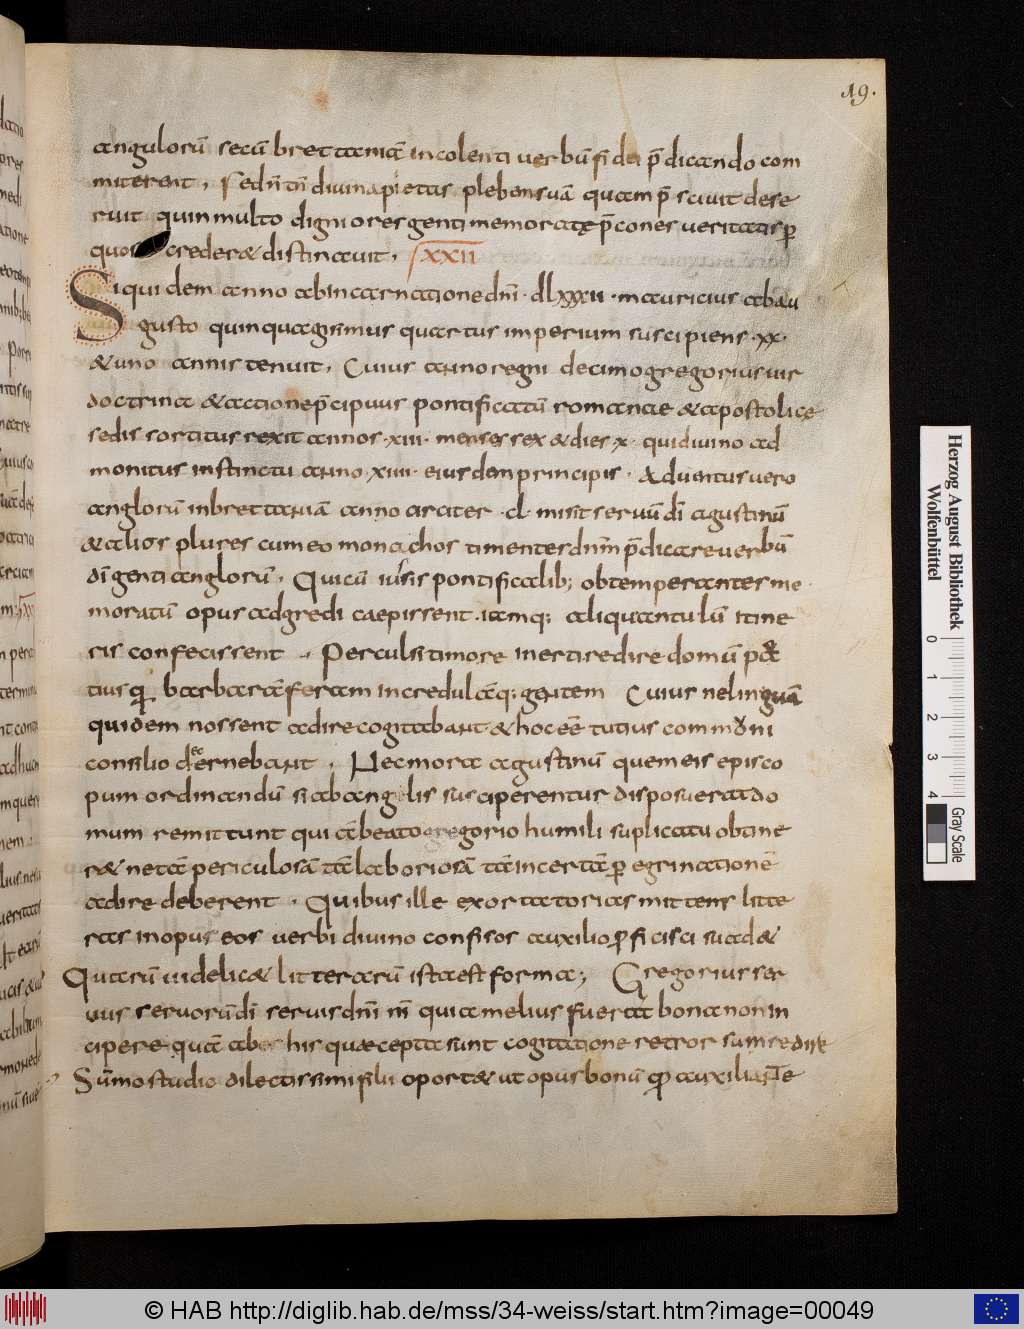 19.
angulorū secū brettaniā incolenti verbū fidei p̄dicando com
mitterent, sed ñ tñ divina pietas plebem suā quam p̄scivit dese
ruit quin multo digniores genti memoratę p̄cones veritatis ꝑ
quos crederet distinavit, XXII
Siquidem anno ab incarnatione dñi · dlxxxii · mauricius ab au
gusto quinquagesimus quartus imperium suscipiens · xx ·
& uno annis tenuit, Cuius anno regni decimo gregorius vir
doctrina & actione p̄cipuus pontificatū romanae & apostolicę
sedis sortitus rexit annos · xiii · menses sex & dies x · qui divino ad
monitus instinctu anno · xiiii · eiusdem principis · Adventus vero
anglorū in brettaniā anno circiter · cl · misit servū di agustinū
& alios plures cum eo monachos timentes dnm p̄dicare verbū
di genti anglorū, Qui cū iussis pontificalib; obtemperantes me
moratū opus adgredi caepissent · iamq; aliquantulū itine
ris confecissent , Perculsi timore inerti redire domū pot
tius quā barbarā feram incredulāq; gentem Cuius ne linguā
quidem nossent adire cogitabant & hoc eē tutius commoni
consilio decernebant , Nec mora agustinū quem eis episco
pum ordinandū si ab anglis susciperentur disposuerat do
mum remittunt qui ab beato gregorio humili suplicatu obtine
r& ne tā periculosā tā laboriosā tā incertā ꝑegrinationē
adire deberent , Quibus ille exortatorias mittens litte
ras in opus eos verbi divino confisos auxilio ꝓficisci suad&
Quarū videlic& litterarū ista est forma; Gregorius ser
vus servorū di servis dñi ñi quia melius fuerat bona non in
cipere quā ab his quae cepta sunt cogitatione retrorsum redire
Sūmo studio dilectissimi filii oport& ut opus bonū qd auxiliante
Herzog August Bibliothek
Wolfenbüttel
0 1 2 3 4
Gray Scale
© HAB http://diglib.hab.de/mss/34-weiss/start.htm?image=00049